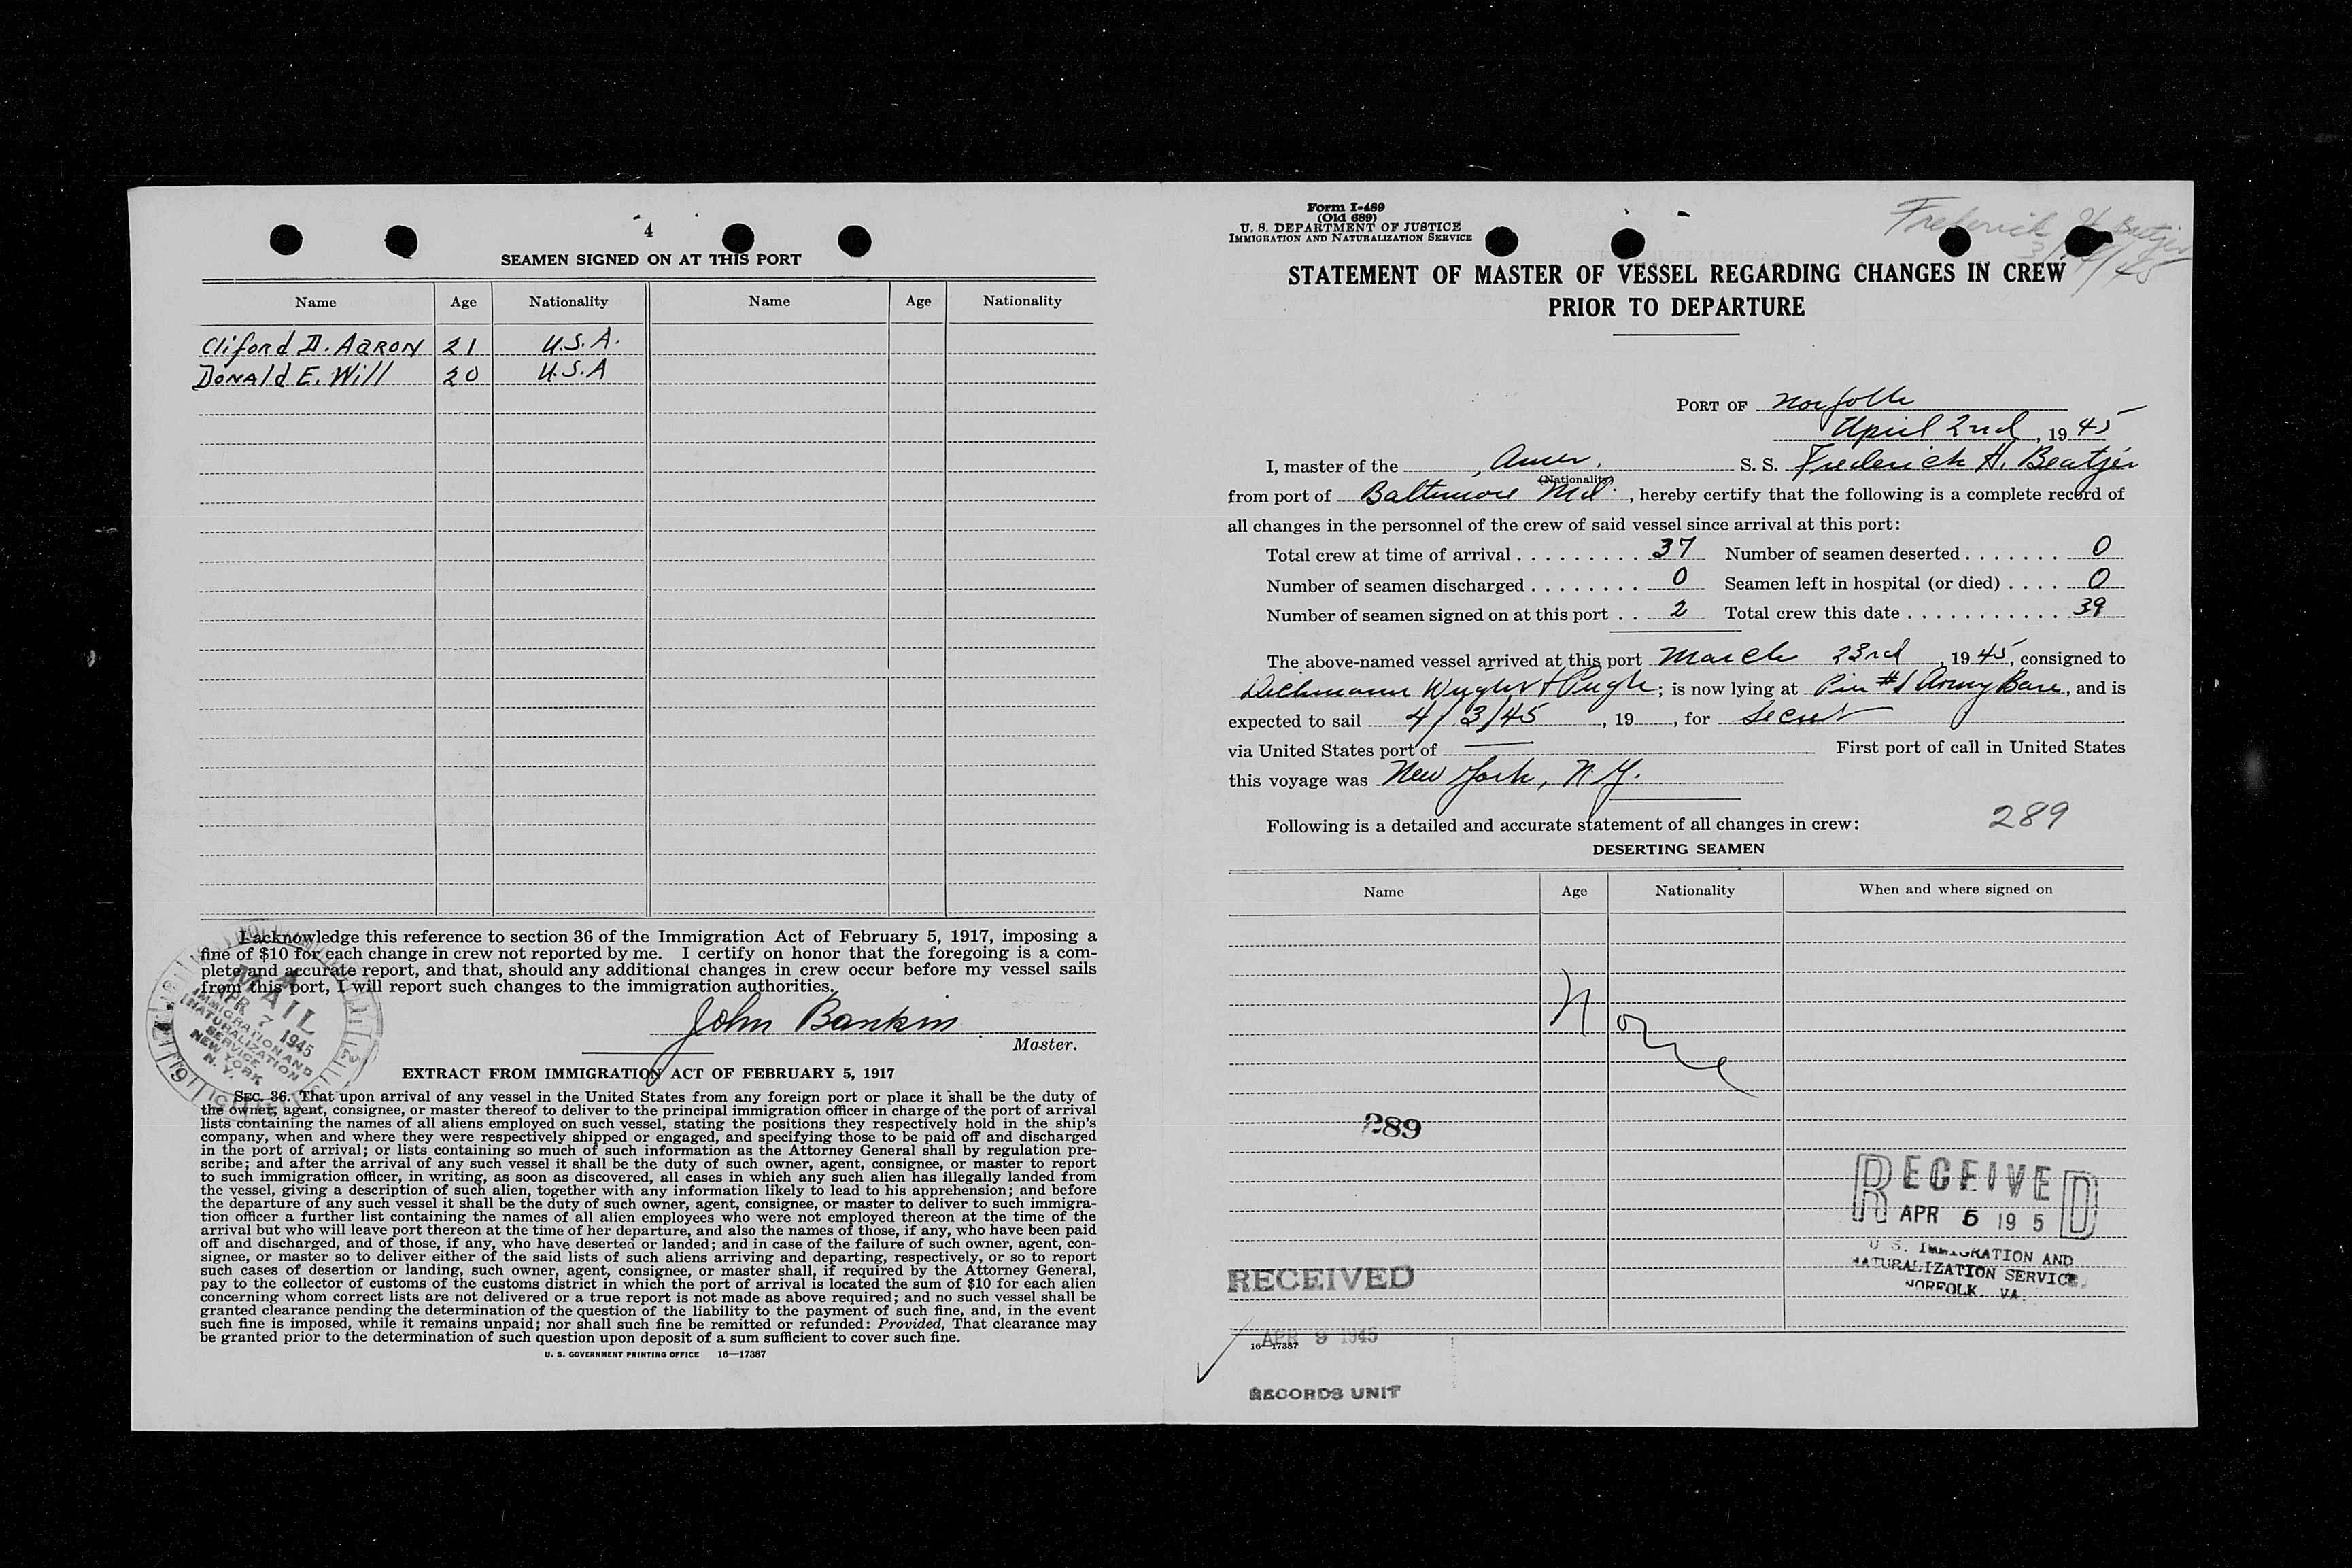 4
SEAMEN SIGNED ON AT THIS PORT
Name Age Nationality Name Age Nationality
Cliford D. AaRON 21 U.S.A.
DONAld E. Will 20 U.S.A
I acknowledge this reference to section 36 of the Immigration Act of February 5, 1917, imposing a
fine of $10 for each change in crew not reported by me. I certify on honor that the foregoing is a com-
plete and accurate report, and that, should any additional changes in crew occur before my vessel sails
from this port, I will report such changes to the immigration authorities.
MAIL
APR 7 1945
IMMIGRATION AND
NATURALIZATION
SERVICE
NEW YORK
N. Y.
John Bankin
Master.
EXTRACT FROM IMMIGRATION ACT OF FEBRUARY 5, 1917
SEC. 36. That upon arrival of any vessel in the United States from any foreign port or place it shall be the duty of
the owner, agent, consignee, or master thereof to deliver to the principal immigration officer in charge of the port of arrival
lists containing the names of all aliens employed on such vessel, stating the positions they respectively hold in the ship's
company, when and where they were respectively shipped or engaged, and specifying those to be paid off and discharged
in the port of arrival; or lists containing so much of such information as the Attorney General shall by regulation pre-
scribe; and after the arrival of any such vessel it shall be the duty of such owner, agent, consignee, or master to report
to such immigration officer, in writing, as soon as discovered, all cases in which any such alien has illegally landed from
the vessel, giving a description of such alien, together with any information likely to lead to his apprehension; and before
the departure of any such vessel it shall be the duty of such owner, agent, consignee, or master to deliver to such immigra-
tion officer a further list containing the names of all alien employees who were not employed thereon at the time of the
arrival but who will leave port thereon at the time of her departure, and also the names of those, if any, who have been paid
off and discharged, and of those, if any, who have deserted or landed; and in case of the failure of such owner, agent, con-
signee, or master so to deliver either of the said lists of such aliens arriving and departing, respectively, or so to report
such cases of desertion or landing, such owner, agent, consignee, or master shall, if required by the Attorney General,
pay to the collector of customs of the customs district in which the port of arrival is located the sum of $10 for each alien
concerning whom correct lists are not delivered or a true report is not made as above required; and no such vessel shall be
granted clearance pending the determination of the question of the liability to the payment of such fine, and, in the event
such fine is imposed, while it remains unpaid; nor shall such fine be remitted or refunded: Provided, That clearance may
be granted prior to the determination of such question upon deposit of a sum sufficient to cover such fine.
U. S. GOVERNMENT PRINTING OFFICE 16—17387
Form I-489
(Old 689)
U. S. DEPARTMENT OF JUSTICE
IMMIGRATION AND NATURALIZATION SERVICE
Frederick H Beatjer
STATEMENT OF MASTER OF VESSEL REGARDING CHANGES IN CREW
PRIOR TO DEPARTURE
PORT OF Norfolk
April 2nd, 19 45
I, master of the Amer. S. S. Frederick H. Beatjer
(Nationality)
from port of Baltimore Md., hereby certify that the following is a complete record of
all changes in the personnel of the crew of said vessel since arrival at this port:
Total crew at time of arrival 37 Number of seamen deserted 0
Number of seamen discharged 0 Seamen left in hospital (or died) 0
Number of seamen signed on at this port 2 Total crew this date 39
The above-named vessel arrived at this port March 23rd, 19 45, consigned to
Dichmann Wright & Pugh; is now lying at Pier #1 Army Base, and is
expected to sail 4/3/45, 19 , for Secret
via United States port of — First port of call in United States
this voyage was New York, N.Y.
Following is a detailed and accurate statement of all changes in crew: 289
DESERTING SEAMEN
Name Age Nationality When and where signed on
None
289
RECEIVED
APR 5 19 5
U. S. IMMIGRATION AND
NATURALIZATION SERVICE
NORFOLK, VA.
RECEIVED
APR 9 1945
16—17387
RECORDS UNIT